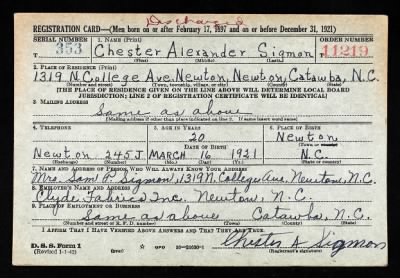 Discharged
REGISTRATION CARD—(Men born on or after February 17, 1897 and on or before December 31, 1921)
SERIAL NUMBER 1. NAME (Print) ORDER NUMBER
353 Chester Alexander Sigmon 11219
(First) (Middle) (Last)
2. PLACE OF RESIDENCE (Print)
1319 N. College Ave. Newton, Newton, Catawba, N.C.
(Number and street) (Town, township, village, or city) (County) (State)
[THE PLACE OF RESIDENCE GIVEN ON THE LINE ABOVE WILL DETERMINE LOCAL BOARD
JURISDICTION; LINE 2 OF REGISTRATION CERTIFICATE WILL BE IDENTICAL]
3. MAILING ADDRESS
Same as above
[Mailing address if other than place indicated on line 2. If same insert word same]
4. TELEPHONE 5. AGE IN YEARS 6. PLACE OF BIRTH
20 Newton
DATE OF BIRTH (Town or county)
Newton 245J MARCH 16 1921 N.C.
(Exchange) (Number) (Mo.) (Day) (Yr.) (State or country)
7. NAME AND ADDRESS OF PERSON WHO WILL ALWAYS KNOW YOUR ADDRESS
Mrs. Sam P. Sigmon, 1319 N. College Ave, Newton, N.C.
8. EMPLOYER'S NAME AND ADDRESS
Clyde Fabrics Inc. Newton, N.C.
9. PLACE OF EMPLOYMENT OR BUSINESS
Same as above Catawba, N.C.
(Number and street or R. F. D. number) (Town) (County) (State)
I AFFIRM THAT I HAVE VERIFIED ABOVE ANSWERS AND THAT THEY ARE TRUE.
D. S. S. Form 1
(Revised 1-1-42) (over) GPO 16—21630-1 Chester A Sigmon
(Registrant's signature)